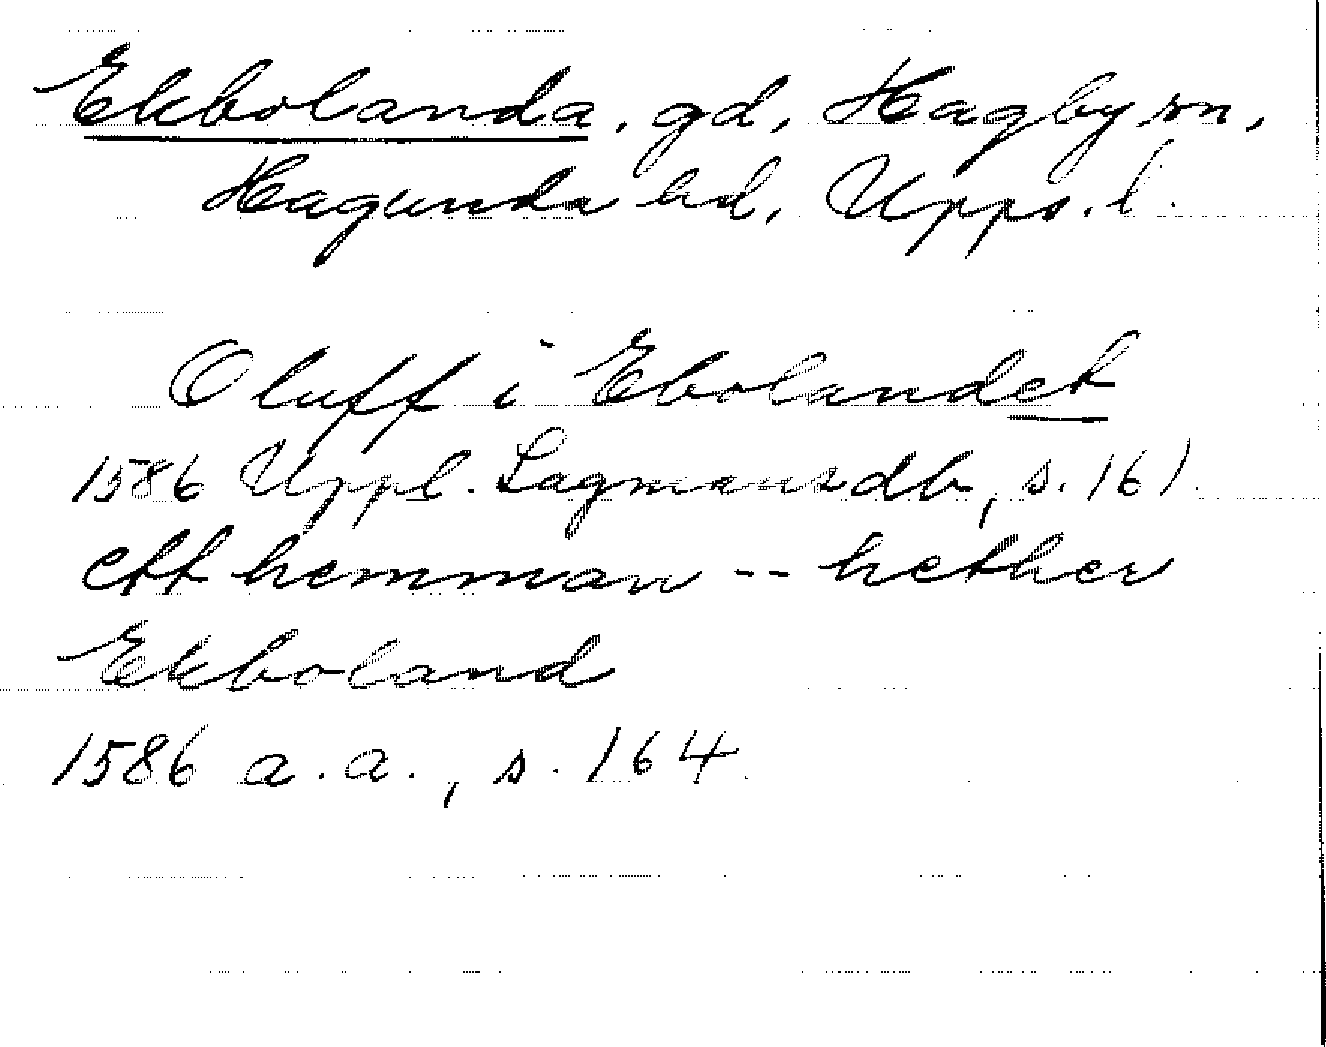 Ekbolanda, gd, Hagby sn,
Hagunda hd, Upps. l.
Oluff i Ebolandet
1586 Uppl. Lagmansdb, s. 161
ett hemman -- hether
Ekboland
1586 a.a., s. 164